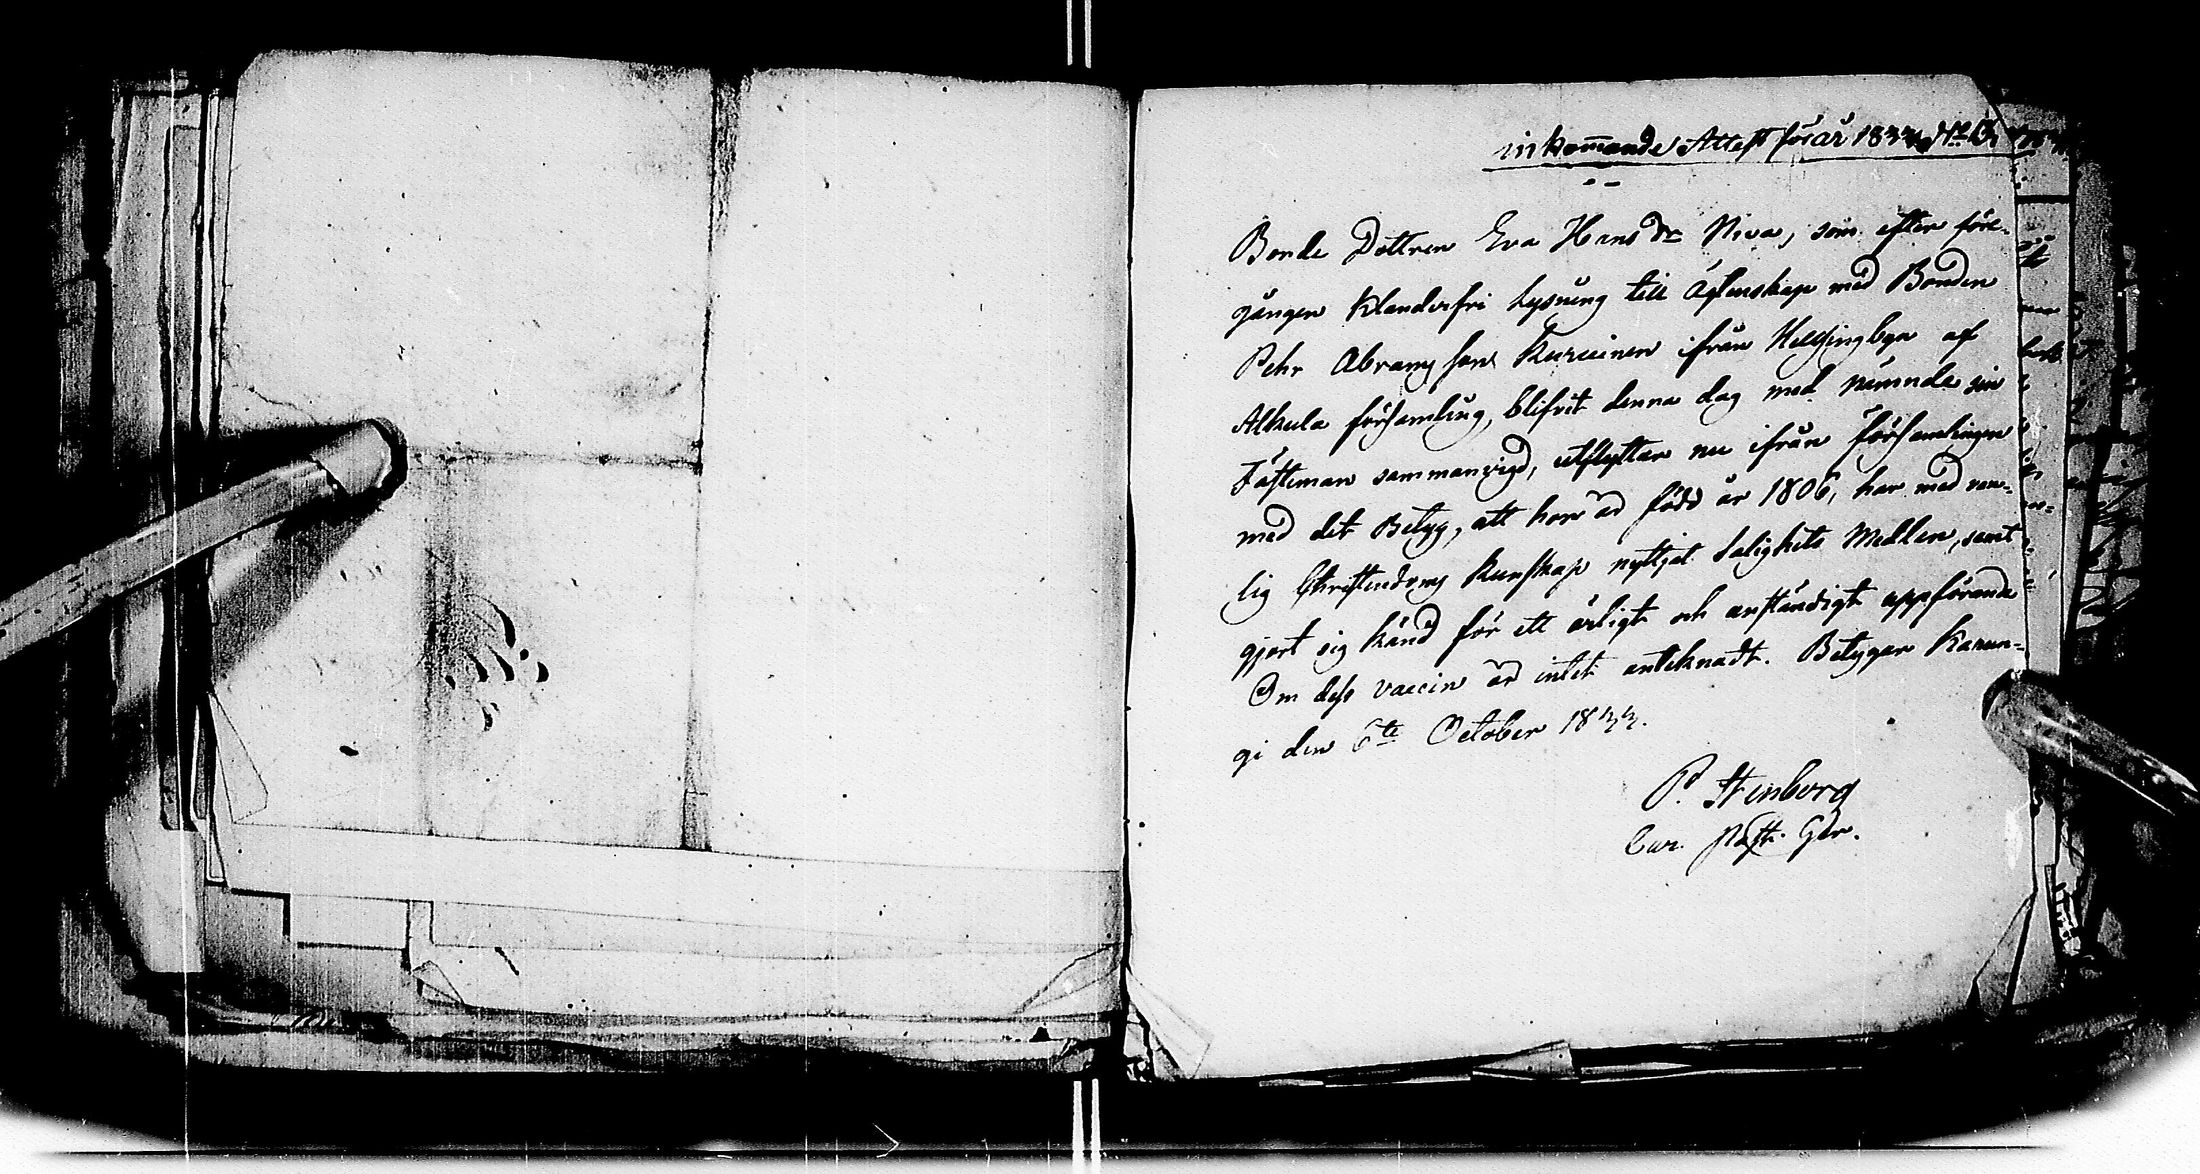 inkommande Attest för år 1833 No
Bonde Dottren Eva Hansdr Niva, som efter före-
gången klanderfri Lysning till Ägtenskap med Bonden
Pehr Abramsson Kuruinen ifrån Helsingbyn af
Alkula församling, blifvit denna dag med nämnde sin
Fästeman sammanvigd, utflyttar nu ifrån församlingen
med det Betyg, att hon är född år 1806, har med nöj-
lig Christendoms Kunskap nyttjat Salighets Medlen, samt
gjort sig känd för ett ärligt och anständigt uppförande
Om dess vaccin är intet anteknadt. Betygar Karun-
gi den 6te October 1833.
P. Stenborg
Cur. Past. Ger.